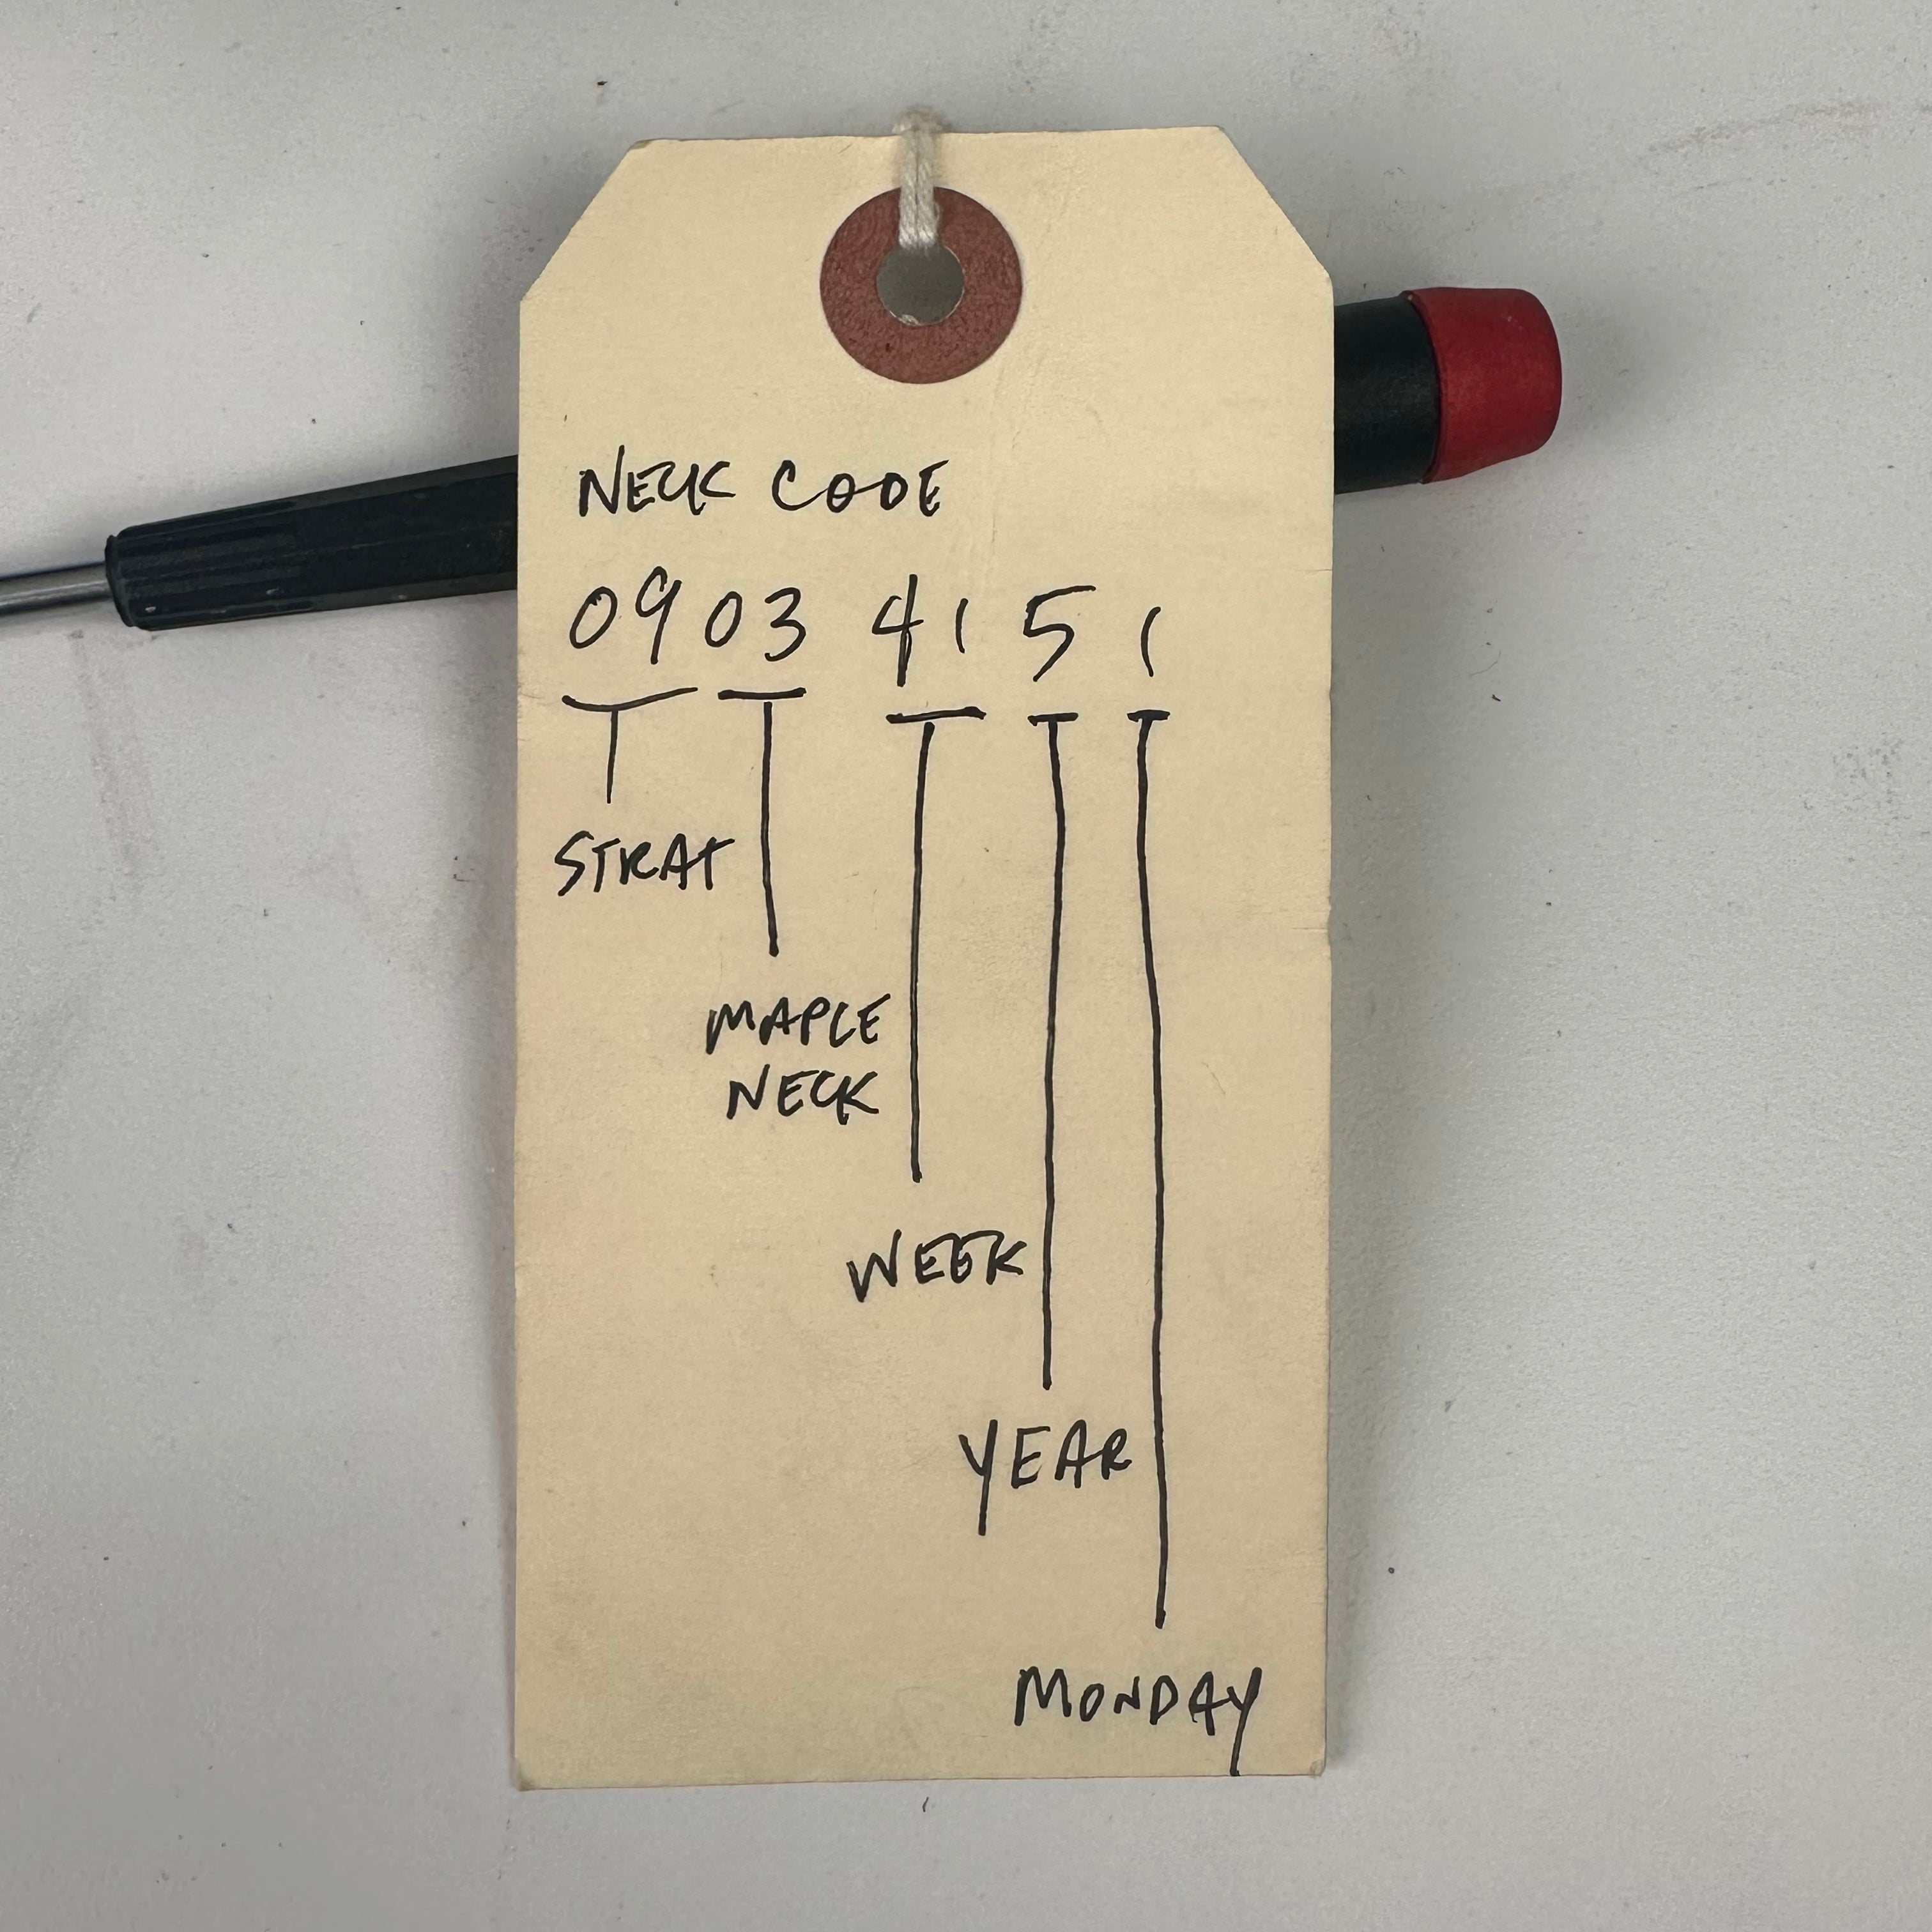 NECK CODE
0903 41 5 1
STRAT
MAPLE
NECK
WEEK
YEAR
MONDAY